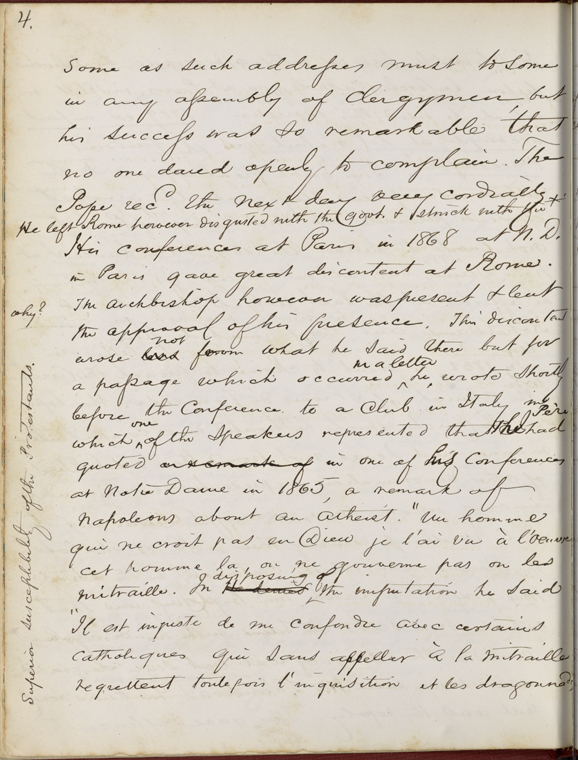 4.
Some as such addresses must to some
in any assembly of clergymen, but
his success was so remarkable that
no one dared openly to complain. The
Pope rec'd. the next day very cordially
He left Rome however disgusted with the govt. & struck with the
His conferences at Paris in 1868 at N. D.
in Paris gave great discontent at Rome.
The Archbishop however was present & lent
why?
the approval of his presence. This discontent
arose not from what he said there but for
a passage which occurred in a letter he wrote shortly
before the Conference to a Club in Italy in
which one of the Speakers represented that the Père had
quoted a remark of in one of his Conferences
at Notre Dame in 1865, a remark of
Napoleons about an Atheist. "Un homme
qui ne croit pas en Dieu je l'ai vu à l'oeuvre
cet homme là, on ne gouverne pas on les
mitraille. In disposing of the imputation he said
"Il est injuste de me confondre avec certains
Catholiques qui sans appeller à la mitraille
regrettent toutefois l'inquisition et les dragonnades
Superior susceptibility of the Protestants.